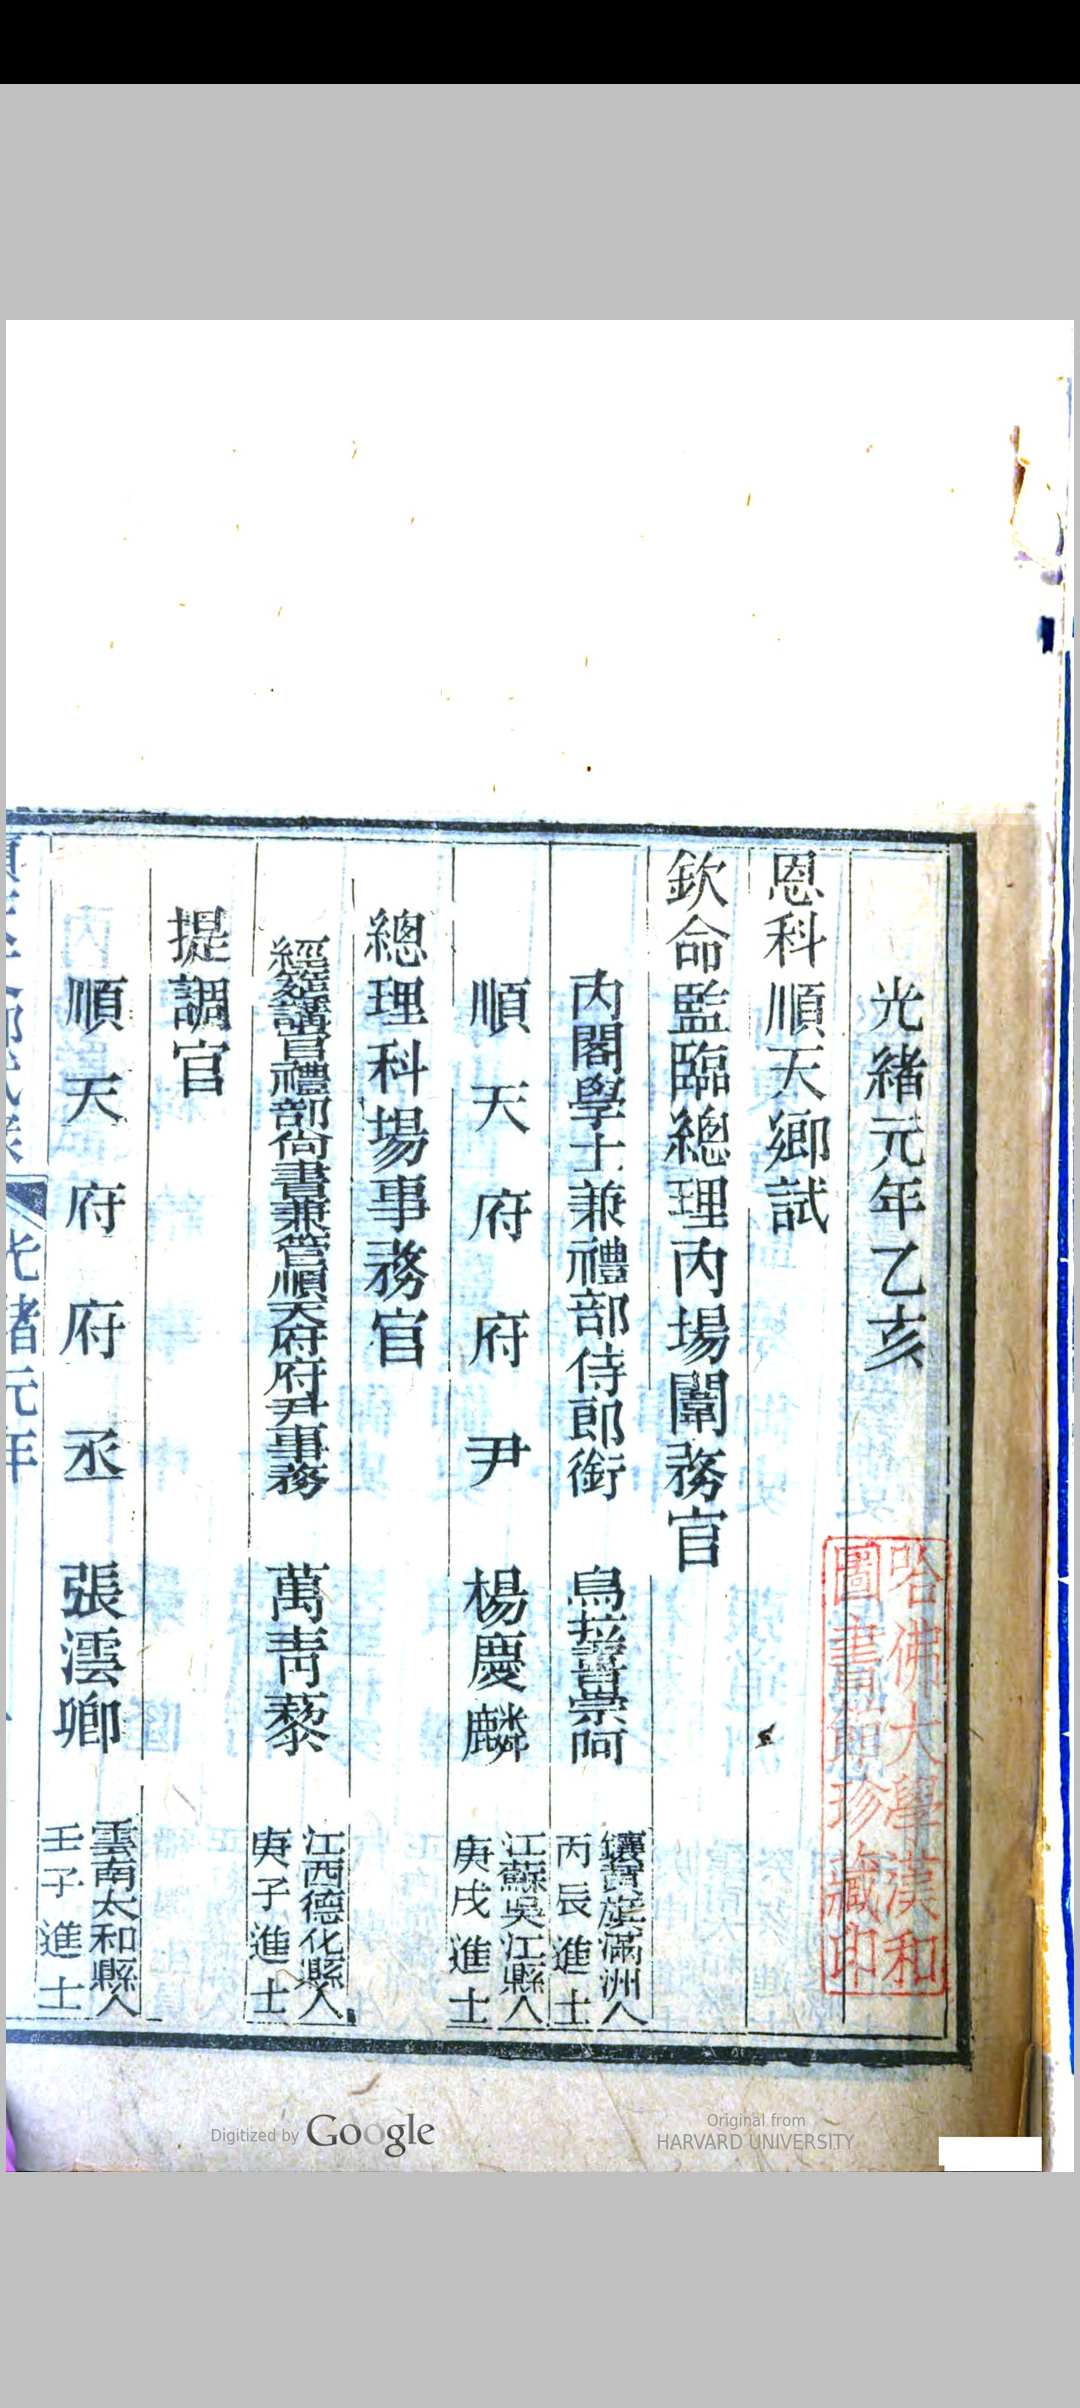 光緒元年乙亥
恩科順天鄉試
欽命監臨總理內場闈務官
內閣學士兼禮部侍郎銜 烏拉喜崇阿 鑲黃旗滿洲人 丙辰進士
順天府府尹 楊慶麟 江蘇吳江縣人 庚戌進士
總理科場事務官
經筵講官禮部尚書兼管順天府府尹事務 萬青藜 江西德化縣人 庚子進士
提調官
順天府府丞 張澐卿 雲南太和縣人 壬子進士
光緒元年
哈佛大學漢和
圖書館珍藏印
Digitized by Google
Original from
HARVARD UNIVERSITY